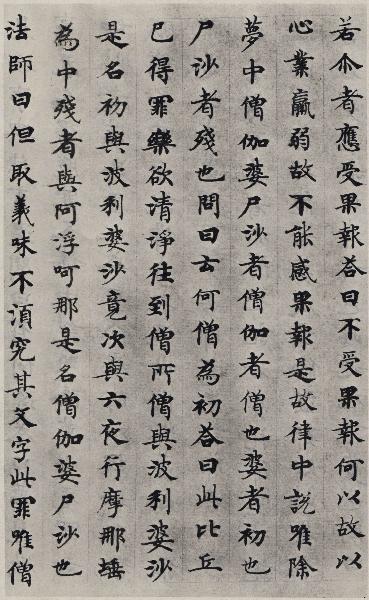 若尒者應受果報荅曰不受果報何以故以
心業羸弱故不能感果報是故律中說唯除
夢中僧伽婆尸沙者僧伽者僧也婆者初也
尸沙者殘也問曰云何僧為初荅曰此比丘
已得罪樂欲清淨往到僧所僧與波利婆沙
是名初與波利婆沙竟次與六夜行摩那埵
為中殘者與阿浮呵那是名僧伽婆尸沙也
法師曰但取義味不湏究其文字此罪唯僧